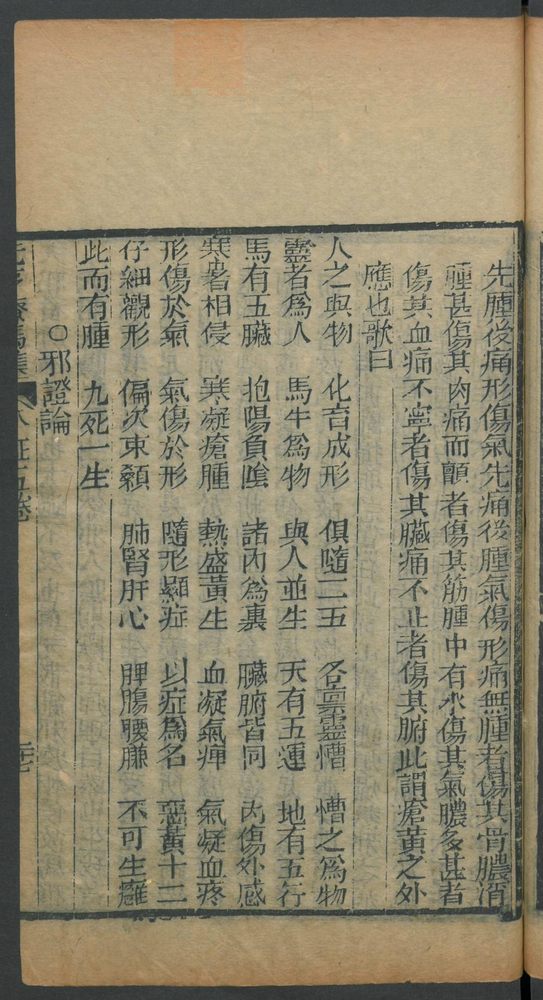 先腫後痛形傷氣先痛後腫氣傷形痛無腫者傷其骨膿消
腫甚傷其肉痛而顫者傷其筋腫中有水傷其氣膿多甚者
傷其血痛不寧者傷其臟痛不止者傷其腑此謂瘡黃之外
應也歌曰
人之與物　化育成形　俱隨二五　各稟靈憯　憯之為物
靈者為人　馬牛為物　與人並生　天有五運　地有五行
馬有五臟　抱陽負陰　諸內為裏　臟腑皆同　內傷外感
寒暑相侵　寒凝瘡腫　熱盛黃生　血凝氣痺　氣凝血疼
形傷於氣　氣傷於形　隨形顯症　以症為名　惡黃十二
仔細觀形　偏次束顙　肺腎肝心　脾腸腰膁　不可生癰
此而有腫　九死一生
○邪證論
元亨療馬集　八証五卷